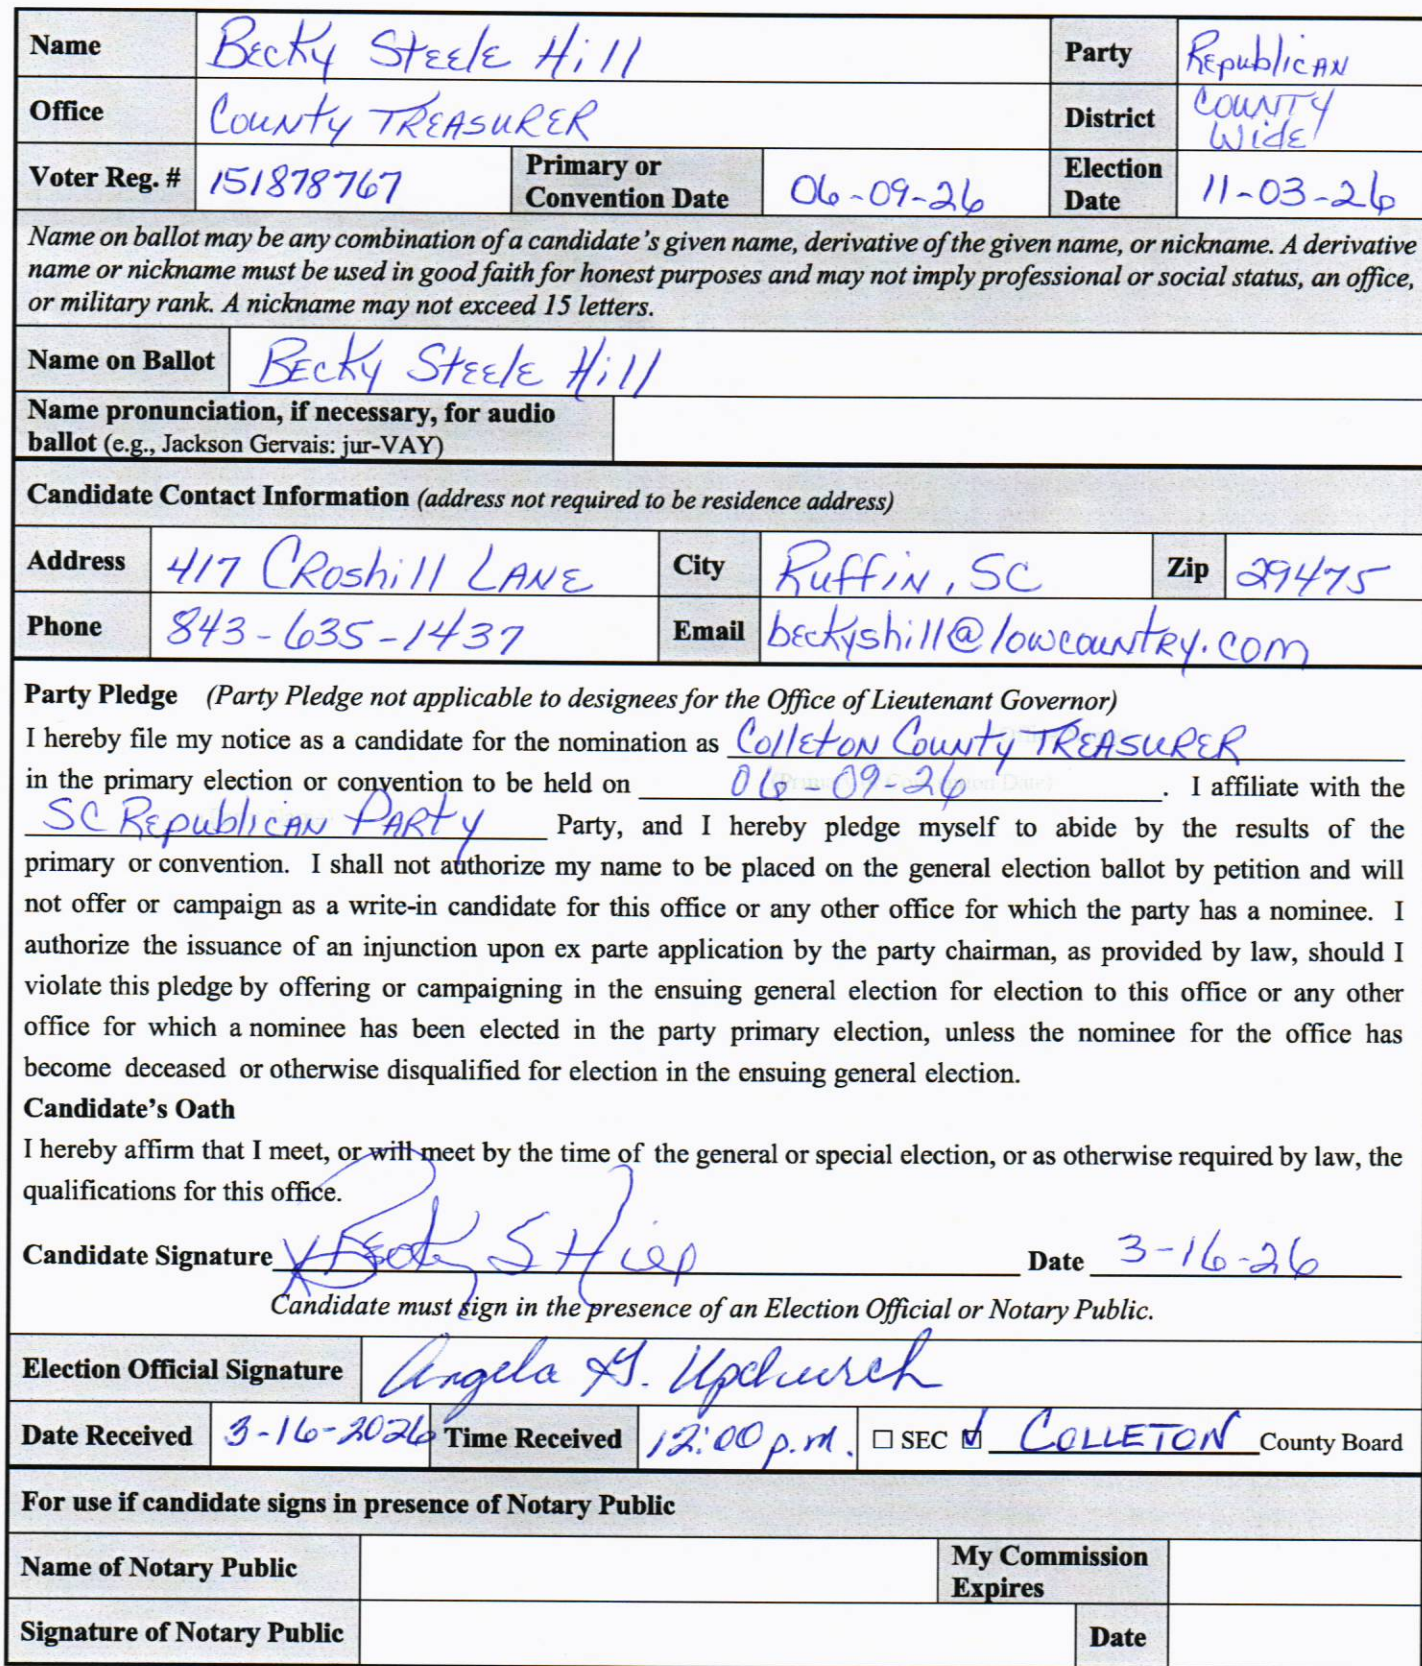 Name Becky Steele Hill Party Republican
Office County Treasurer District County Wide
Voter Reg. # 151878767 Primary or Convention Date 06-09-26 Election Date 11-03-26
Name on ballot may be any combination of a candidate's given name, derivative of the given name, or nickname. A derivative
name or nickname must be used in good faith for honest purposes and may not imply professional or social status, an office,
or military rank. A nickname may not exceed 15 letters.
Name on Ballot Becky Steele Hill
Name pronunciation, if necessary, for audio
ballot (e.g., Jackson Gervais: jur-VAY)
Candidate Contact Information (address not required to be residence address)
Address 417 Croshill Lane City Ruffin, SC Zip 29475
Phone 843-635-1437 Email beckyshill@lowcountry.com
Party Pledge (Party Pledge not applicable to designees for the Office of Lieutenant Governor)
I hereby file my notice as a candidate for the nomination as Colleton County Treasurer
in the primary election or convention to be held on 06-09-26. I affiliate with the
SC Republican Party Party, and I hereby pledge myself to abide by the results of the
primary or convention. I shall not authorize my name to be placed on the general election ballot by petition and will
not offer or campaign as a write-in candidate for this office or any other office for which the party has a nominee. I
authorize the issuance of an injunction upon ex parte application by the party chairman, as provided by law, should I
violate this pledge by offering or campaigning in the ensuing general election for election to this office or any other
office for which a nominee has been elected in the party primary election, unless the nominee for the office has
become deceased or otherwise disqualified for election in the ensuing general election.
Candidate's Oath
I hereby affirm that I meet, or will meet by the time of the general or special election, or as otherwise required by law, the
qualifications for this office.
Candidate Signature Becky S Hill Date 3-16-26
Candidate must sign in the presence of an Election Official or Notary Public.
Election Official Signature Angela G. Upchurch
Date Received 3-16-2026 Time Received 12:00 p.m. ☐ SEC ☑ COLLETON County Board
For use if candidate signs in presence of Notary Public
Name of Notary Public My Commission Expires
Signature of Notary Public Date